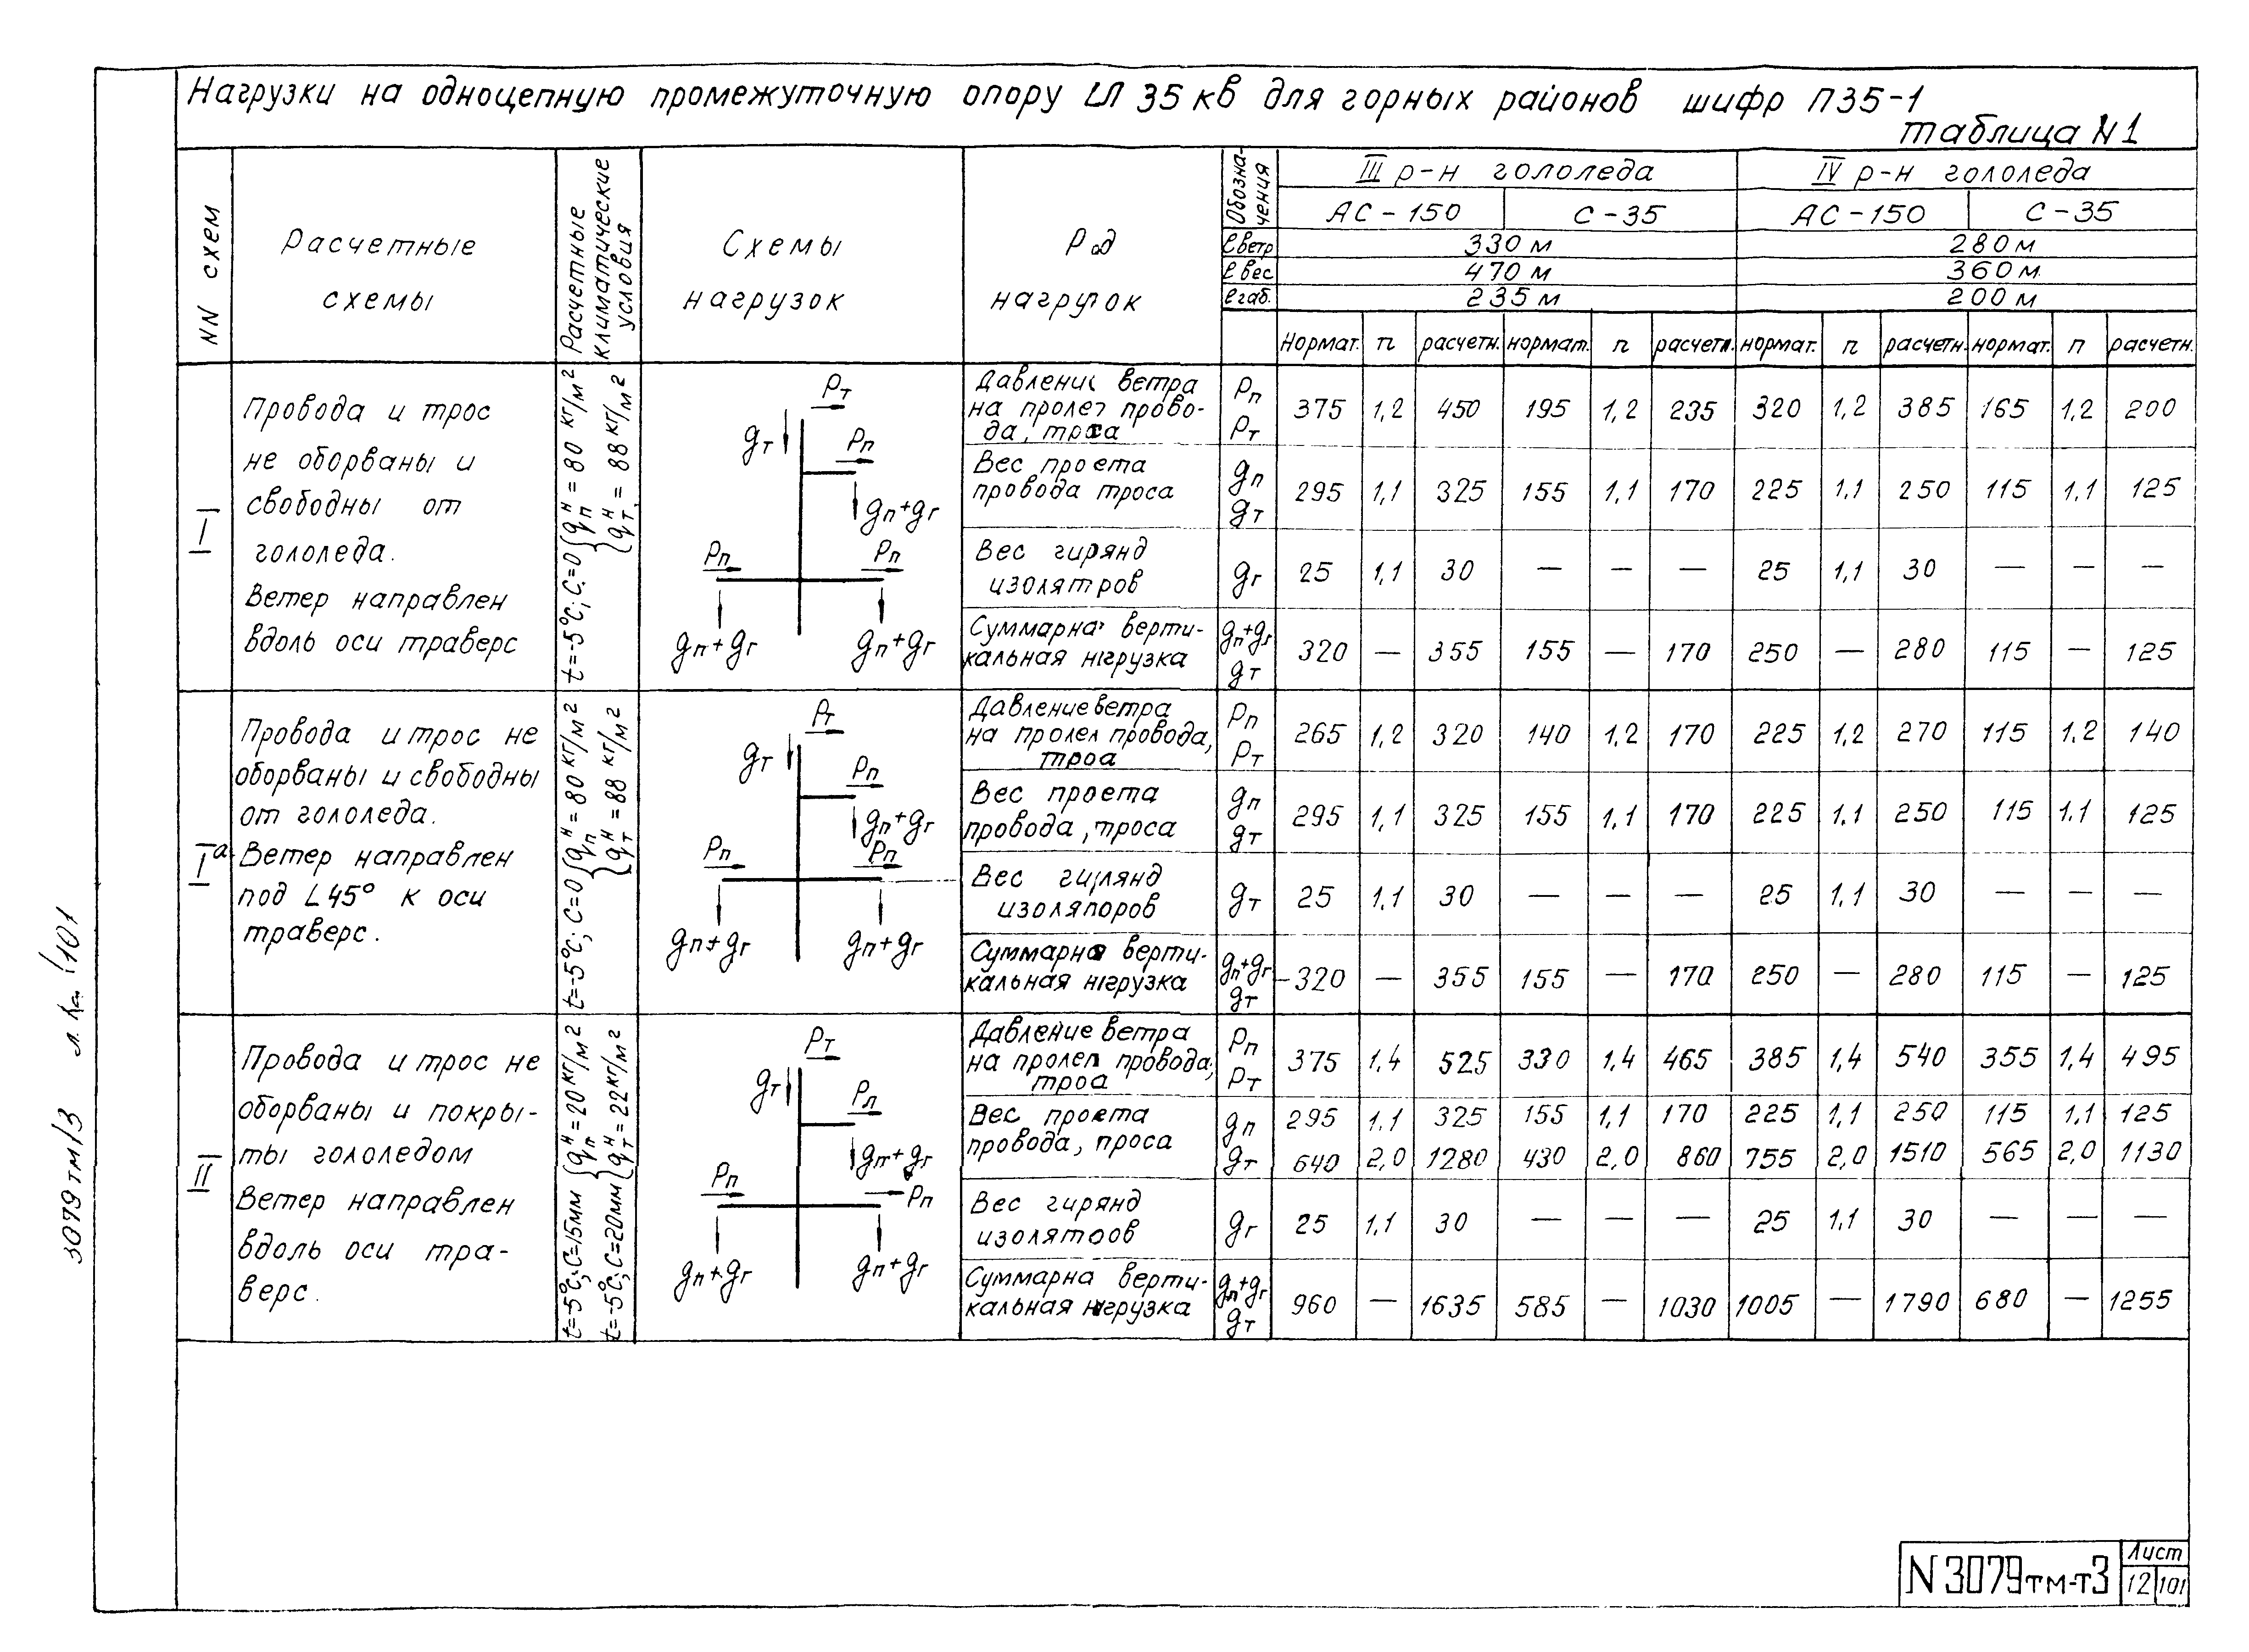 Нагрузки на одноцепную промежуточную опору ВЛ 35 кв для горных районов шифр П35-1
таблица N1
NN схем
Расчетные
схемы
Расчетные
климатические
условия
Схемы
нагрузок
Род
нагрузок
Обозна-
чения
III р-н гололеда
IV р-н гололеда
АС-150 С-35 АС-150 С-35
ℓветр 330 м 280 м
ℓвес 470 м 360 м.
ℓгаб. 235 м 200 м
Нормат. n расчетн. нормат. n расчетн. нормат. n расчетн. нормат. n расчетн.
I
Провода и трос
не оборваны и
свободны от
гололеда.
Ветер направлен
вдоль оси траверс
t=-5°C; C=0 {qпн = 80 кг/м2
{qтн = 88 кг/м2
Pт
gт
Pп
gп+gг
Pп
Pп
gп+gг
gп+gг
Давление ветра
на пролет прово-
да, троса
Pп
Pт
375 1,2 450 195 1,2 235 320 1,2 385 165 1,2 200
Вес проета
провода троса
gп
gт
295 1,1 325 155 1,1 170 225 1,1 250 115 1,1 125
Вес гирянд
изолятров
gг
25 1,1 30 — — — 25 1,1 30 — — —
Суммарна верти-
кальная нагрузка
gп+gг
gт
320 — 355 155 — 170 250 — 280 115 — 125
Iа
Провода и трос не
оборваны и свободны
от гололеда.
Ветер направлен
под L 45° к оси
траверс.
t=-5°C; C=0 {qпн = 80 кг/м2
{qтн = 88 кг/м2
Pт
gт
Pп
gп+gг
Pп
Pп
gп+gг
gп+gг
Давление ветра
на пролет провода,
троа
Pп
Pт
265 1,2 320 140 1,2 170 225 1,2 270 115 1,2 140
Вес проета
провода, троса
gп
gт
295 1,1 325 155 1,1 170 225 1,1 250 115 1,1 125
Вес гирлянд
изоляпоров
gт
25 1,1 30 — — — 25 1,1 30 — — —
Суммарная верти-
кальная нагрузка
gп+gг
gт
320 — 355 155 — 170 250 — 280 115 — 125
II
Провода и трос не
оборваны и покры-
ты гололедом
Ветер направлен
вдоль оси тра-
верс.
t=-5°C; C=15мм {qпн = 20 кг/м2
t=-5°C; C=20мм {qтн = 22 кг/м2
Pт
gт
Pп
gп+gг
Pп
Pп
gп+gг
gп+gг
Давление ветра
на пролет провода,
троа
Pп
Pт
375 1,4 525 330 1,4 465 385 1,4 540 355 1,4 495
Вес проета
провода, проса
gп
gт
295 1,1 325 155 1,1 170 225 1,1 250 115 1,1 125
640 2,0 1280 430 2,0 860 755 2,0 1510 565 2,0 1130
Вес гирянд
изолятоов
gг
25 1,1 30 — — — 25 1,1 30 — — —
Суммарна верти-
кальная нагрузка
gп+gг
gт
960 — 1635 585 — 1030 1005 — 1790 680 — 1255
3079тм/3 л. 101
N 3079тм-т3
Лист
12 101